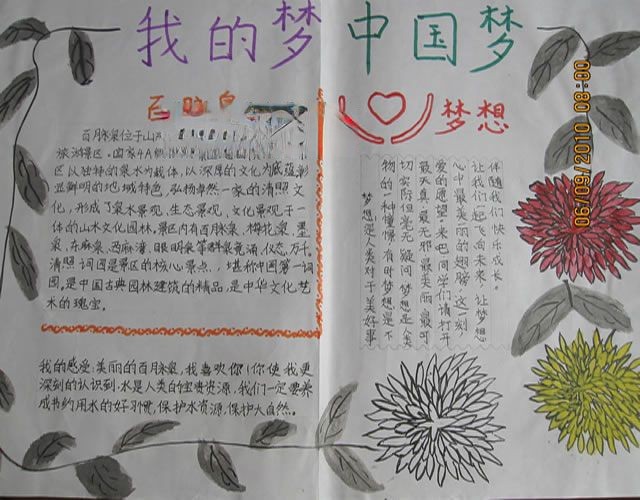 我的梦 中国梦
百脉泉
百脉泉位于山
旅游景区。国家4A
区以独特的泉水为载体,以深厚的文化为底蕴,彰
显鲜明的地域特色,弘扬卓然一家的清照文
化,形成了泉水景观、生态景观、文化景观于一
体的山水文化园林,景区内有百脉泉、梅花泉、墨
泉、东麻泉、西麻湾、眼明泉等群泉竞涌,仪态万千。
清照词园是景区的核心景点,堪称中国第一词
园,是中国古典园林建筑的精品,是中华文化艺
术的瑰宝。
我的感受:美丽的百脉泉,我喜欢你!你使我更
深刻的认识到:水是人类的宝贵资源,我们一定要养
成节约用水的好习惯,保护水资源,保护大自然。
梦想
梦想是人类对于美好事
物的一种憧憬,有时梦想是不
切实际但毫无疑问梦想是人类
最天真最无邪最美丽最可
爱的愿望,来吧同学们请打开
心中最美丽的翅膀,这一刻
让我们起飞向未来,让梦想
伴随我们快乐成长。
06/09/2010 08:00